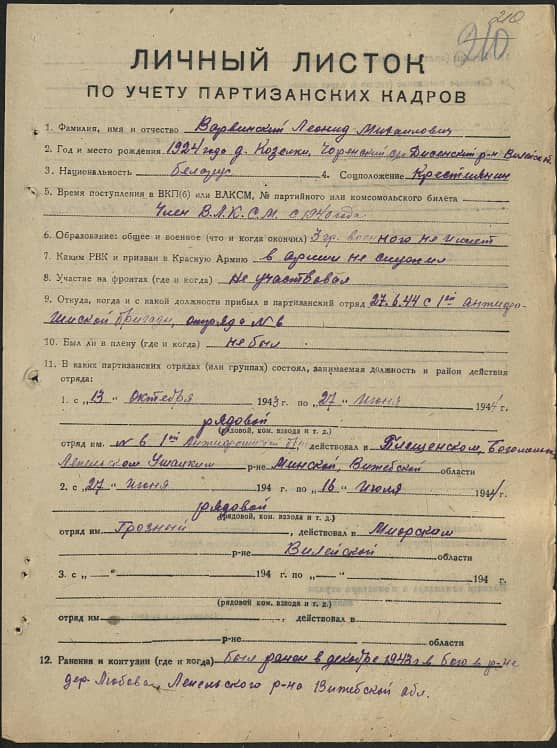 210
210
ЛИЧНЫЙ ЛИСТОК
ПО УЧЕТУ ПАРТИЗАНСКИХ КАДРОВ
1. Фамилия, имя и отчество Варвинский Леонид Михайлович
2. Год и место рождения 1924 года д. Козелки, Дисенский р-н Вилейской
3. Национальность белорус 4. Соцположение Крестьянин
5. Время поступления в ВКП(б) или ВЛКСМ, № партийного или комсомольского билета
Член В.Л.К.С.М. с 1940 года
6. Образование: общее и военное (что и когда окончил) военного не имеет
7. Каким РВК и призван в Красную Армию в армии не служил
8. Участие на фронтах (где и когда) не участвовал
9. Откуда, когда и с какой должности прибыл в партизанский отряд 27.6.44 с 1ой антифа-
шисской бригады, отряда № 6
10. Был ли в плену (где и когда) не был
11. В каких партизанских отрядах (или группах) состоял, занимаемая должность и район действия
отряда:
1. с „13" октября 1943 г. по „27" июня 1944 г.
рядовой
(рядовой, ком. взвода и т. д.)
отряд им. № 6 1ой Антифашисткой бри, действовал в Плещенском,
Лепельском Ушацким р-не Минской, Витебской области
2. с „27" июня 194 г. по „16" июля 1944 г.
рядовой
(рядовой, ком. взвода и т. д.)
отряд им. Грозный, действовал в Миорском
р-не Вилейской области
3. с „—" 194 г. по „—" 194 г.
(рядовой, ком. взвода и т. д.)
отряд им , действовал в
р-не области
12. Ранения и контузии (где и когда) был ранен в декабре 1943 г. в бою в р-не
дер. Любова, Лепельского р-на Витебской обл.